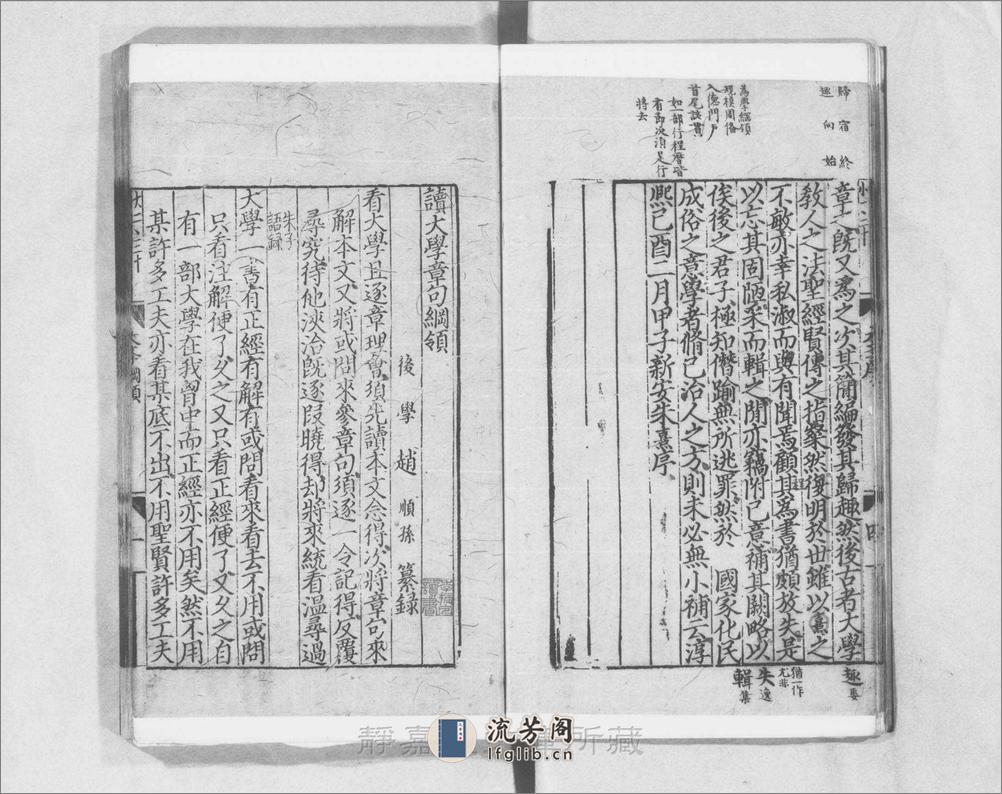 歸宿終
趣向始
為學綱領
規模周俻
入德門戶
首尾該貫
如一部行程曆皆
有節次湏是行
將去
章旣又爲之次其簡編發其歸趣然後古者大學
敎人之法聖經賢傳之指粲然復明於世雖以熹之
不敏亦幸私淑而與有聞焉顧其爲書猶頗放失是
以忘其固陋采而輯之閒亦竊附己意補其闕略以
俟後之君子極知僭踰無所逃罪然於 國家化民
成俗之意學者脩己治人之方則未必無小補云淳
熈己酉二月甲子新安朱熹序
趣
猶一作
尤非
失逸
輯集
讀大學章句綱領
後學趙順孫纂録
看大學且逐章理會須先讀本文念得次將章句來
解本文又將或問來參章句須逐一令記得反覆
尋究待他浹洽旣逐段曉得却將來統看溫尋過
朱子
語録
大學一書有正經有解有或問看來看去不用或問
只看注解便了久之又只看正經便了又久之自
有一部大學在我胷中而正經亦不用矣然不用
某許多工夫亦看某底不出不用聖賢許多工夫
靜嘉 所藏
流芳阁
lfglib.cn